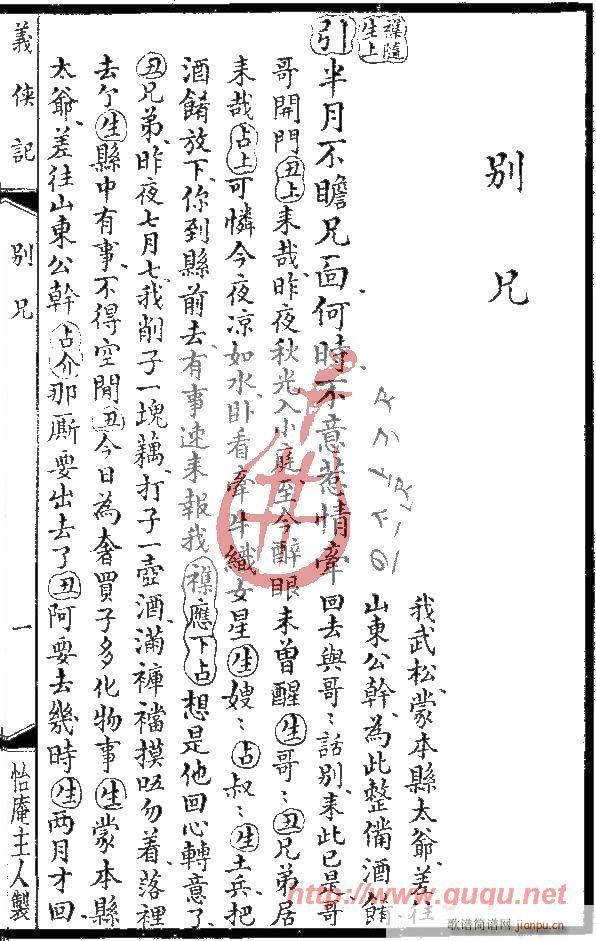 別兄
雜隨生上
引半月不瞻兄面何時不意惹情牽
我武松蒙本縣太爺差往
山東公幹為此整備酒餚
回去與哥〻話別來此已是哥
哥開門丑上來哉昨夜秋光入小庭至今醉眼未曾醒生哥〻丑兄弟居
來哉占上可憐今夜凉如水卧看牽牛織女星生嫂〻占叔〻生土兵把
酒餚放下你到縣前去有事速來報我雜應下占想是他回心轉意了
丑兄弟昨夜七月七我削子一塊藕打子一壺酒滿褲襠摸呒勿着落裡
去子生縣中有事不得空閒丑今日為奢買子多化物事生蒙本縣
太爺差往山東公幹占介那厮要出去了丑阿要去幾時生兩月才回
義俠記
別兄
一
怡庵主人製
http://www.ququ.net
歌谱简谱网
jianpu.cn